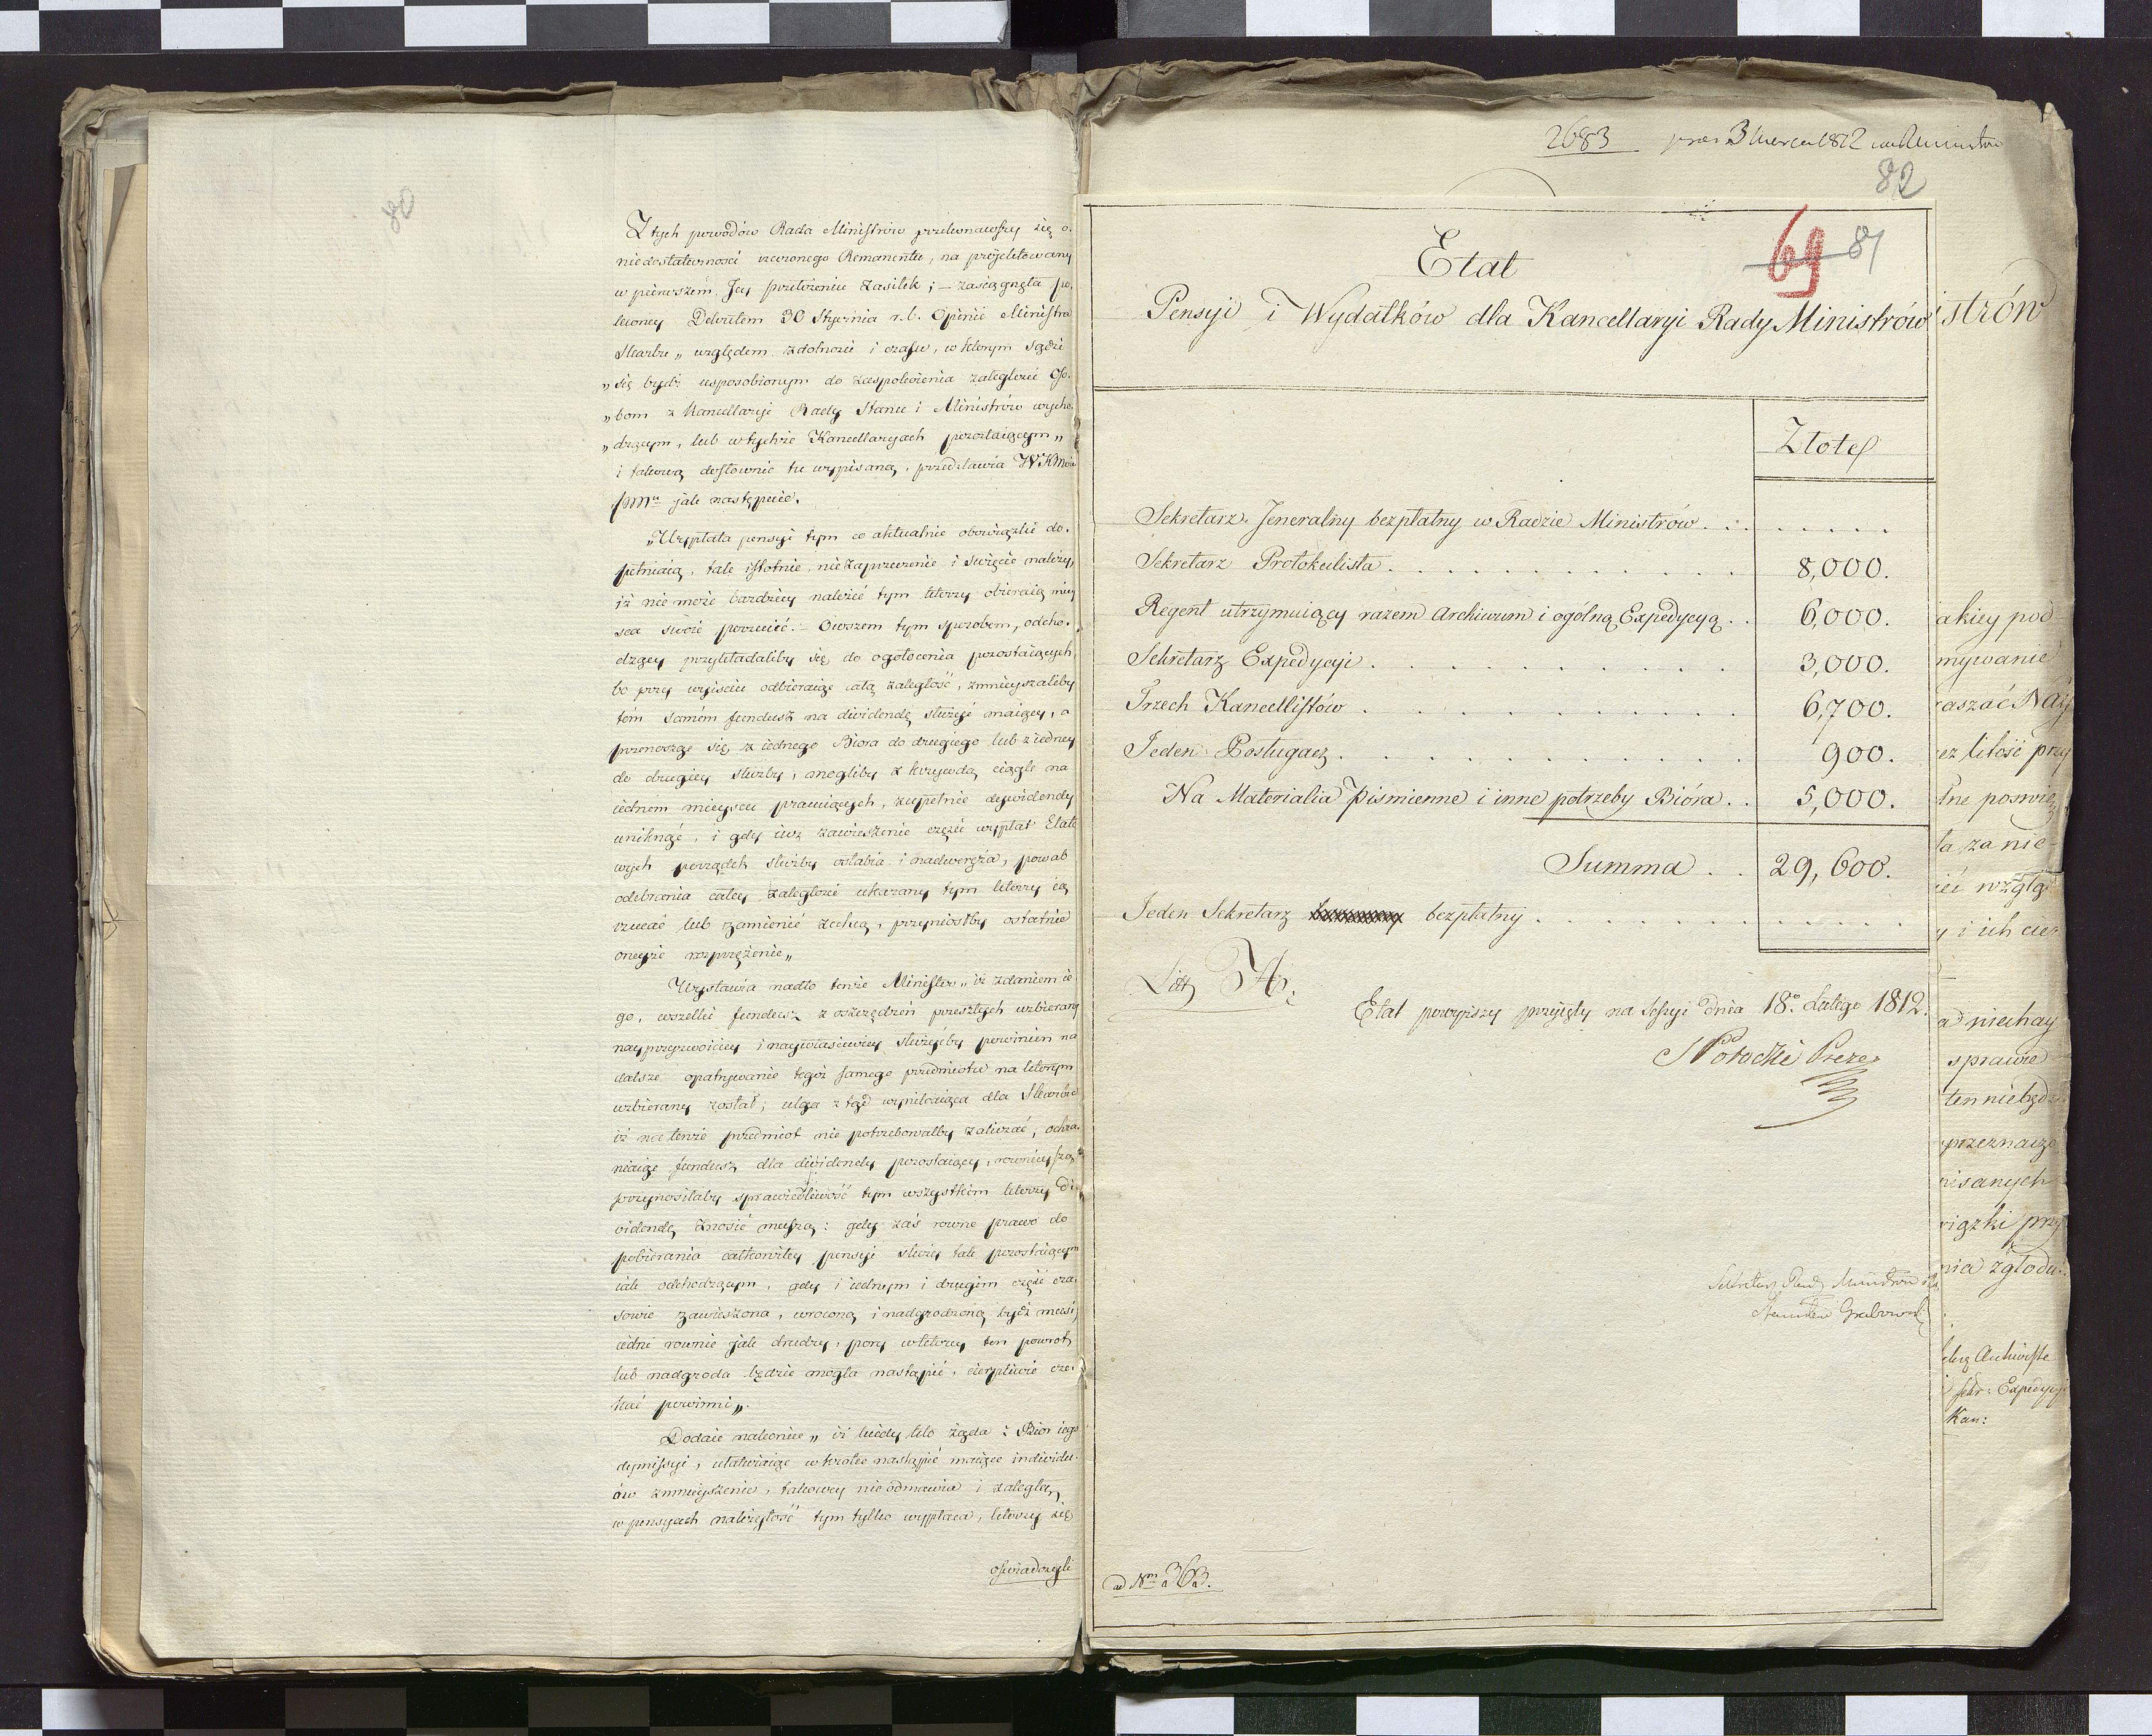 80
Z tych powodów Rada Ministrów przekonawszy się o
niedostateczności rzeczonego Remanentu, na projektowany
w pierwszem Jey przełożeniu zasiłek; – zasiągnęła po
leconey Dekretem 30 Stycznia r.b. Opinii Ministra
Skarbu „względem zdolności i czasu, w ktorym sądzi
„się bydź usposobionym do zaspokoienia zaległości Oso-
„bom z Kancellaryi Rady Stanu i Ministrów wycho-
„dzącym, lub w tychże Kancellaryach pozostaiącym„
i takową dosłownie tu wypisaną, przedstawia WKMci
jak następuie.
„Wypłata pensyi tym co aktualnie obowiązki do-
pełniaią, tak istotnie, niezaprzeczenie i święcie należy,
iż nie może bardziey należeć tym ktorzy obieraią miey
sca swoie porzucić. – Owszem tym sposobem, odcho-
dzący przykładaliby się do ogołocenia pozostaiących
bo przy wyiściu odbieraiąc całą zaległość, zmnieyszaliby
tém samém fundusz na dividendę służyć maiący, a
przenosząc się z iednego Biora do drugiego lub z iedney
do drugiey służby, mogliby z krzywdą ciągle na
iedném mieyscu pracuiących, zupełnie dywidendy
uniknąć, i gdy iuż zawieszenie części wypłat Etato
wych porządek służby osłabia i nadweręża, powab
odebrania całey zaległości ukazany tym ktorzy ią
rzucać lub zamienić zechcą, przyniosłby ostatnie
oneyże rozprzężenie„
Wystawia nadto tenże Minister „iż zdaniem ie
go, wszelki fundusz z oszczędzeń przeszłych uzbierany
nayprzyzwoiciey i naywłaściwiey służyćby powinien na
dalsze opatrywanie tegoż samego przedmiotu na ktorym
uzbierany został; ulga ztąd wynikaiąca dla Skarbu
iż na tenże przedmiot nie potrzebowałby zaliczać, ochra-
niaiąc fundusz dla dividendy pozostaiący, rownieyszą
przynosiłaby sprawiedliwość tym wszystkim ktorzy Di
videndę znosić muszą: gdy zaś rowne prawo do
pobierania całkowitey pensyi służy tak pozostaiącym
iak odchodzącym, gdy i iednym i drugim część cza-
sowie zawieszona, wrocona i nadgrodzoną bydź musi,
iedni rownie jak drudzy, pory w ktorey ten powrot
lub nadgroda będzie mogła nastąpić, cierpliwie cze-
kać powinni„.
Dodaie nakoniec „iż kiedy kto żąda z Bior iego
dymissyi, ułatwiaiąc wkrotce nastąpić maiące individu-
ów zmnieyszenie, takowey nie odmawia i zaległą
w pensyach należytość tym tylko wypłaca, ktorzy się
oświadczyli
2683 praes 3 Marca 1812
82
69 81
Etat
Pensyi i Wydatków dla Kancellaryi Rady Ministrów
Złote
Sekretarz Jeneralny bezpłatny w Radzie Ministrów . . . . . . . .
Sekretarz Protokulista . . . . . . . . . . . . 8,000.
Regent utrzymuiący razem Archiwum i ogolną Expedycyą . . 6,000.
Sekretarz Expedycyi . . . . . . . . . . . . 3,000.
Trzech Kancellistów . . . . . . . . . . . . 6,700.
Jeden Posługacz . . . . . . . . . . . . . 900.
Na Materialia piśmienne i inne potrzeby Bióra . . 5,000.
Summa . . 29,600.
Jeden Sekretarz bezpłatny . . . . . . . . . . . . .
Litt H.
Etat powyższy przyięty na Sessyi dnia 18º Lutego 1812.
S Potocki Prezes
Sekretarz Rady Ministrów
Stanisław Grabowski
ad Nrm 363.
strów
akiey pod
mywanie
raszać Nay
ez litość przy
lne poswię
ła, za nie-
ieć wzglę
y i ich cier
ad niechay
sprawie
ten niebędz
przeznacze
isanych
wiązki przy
nia z głodu.
Archiwiste
Sekr: Expedycyi
Kan: